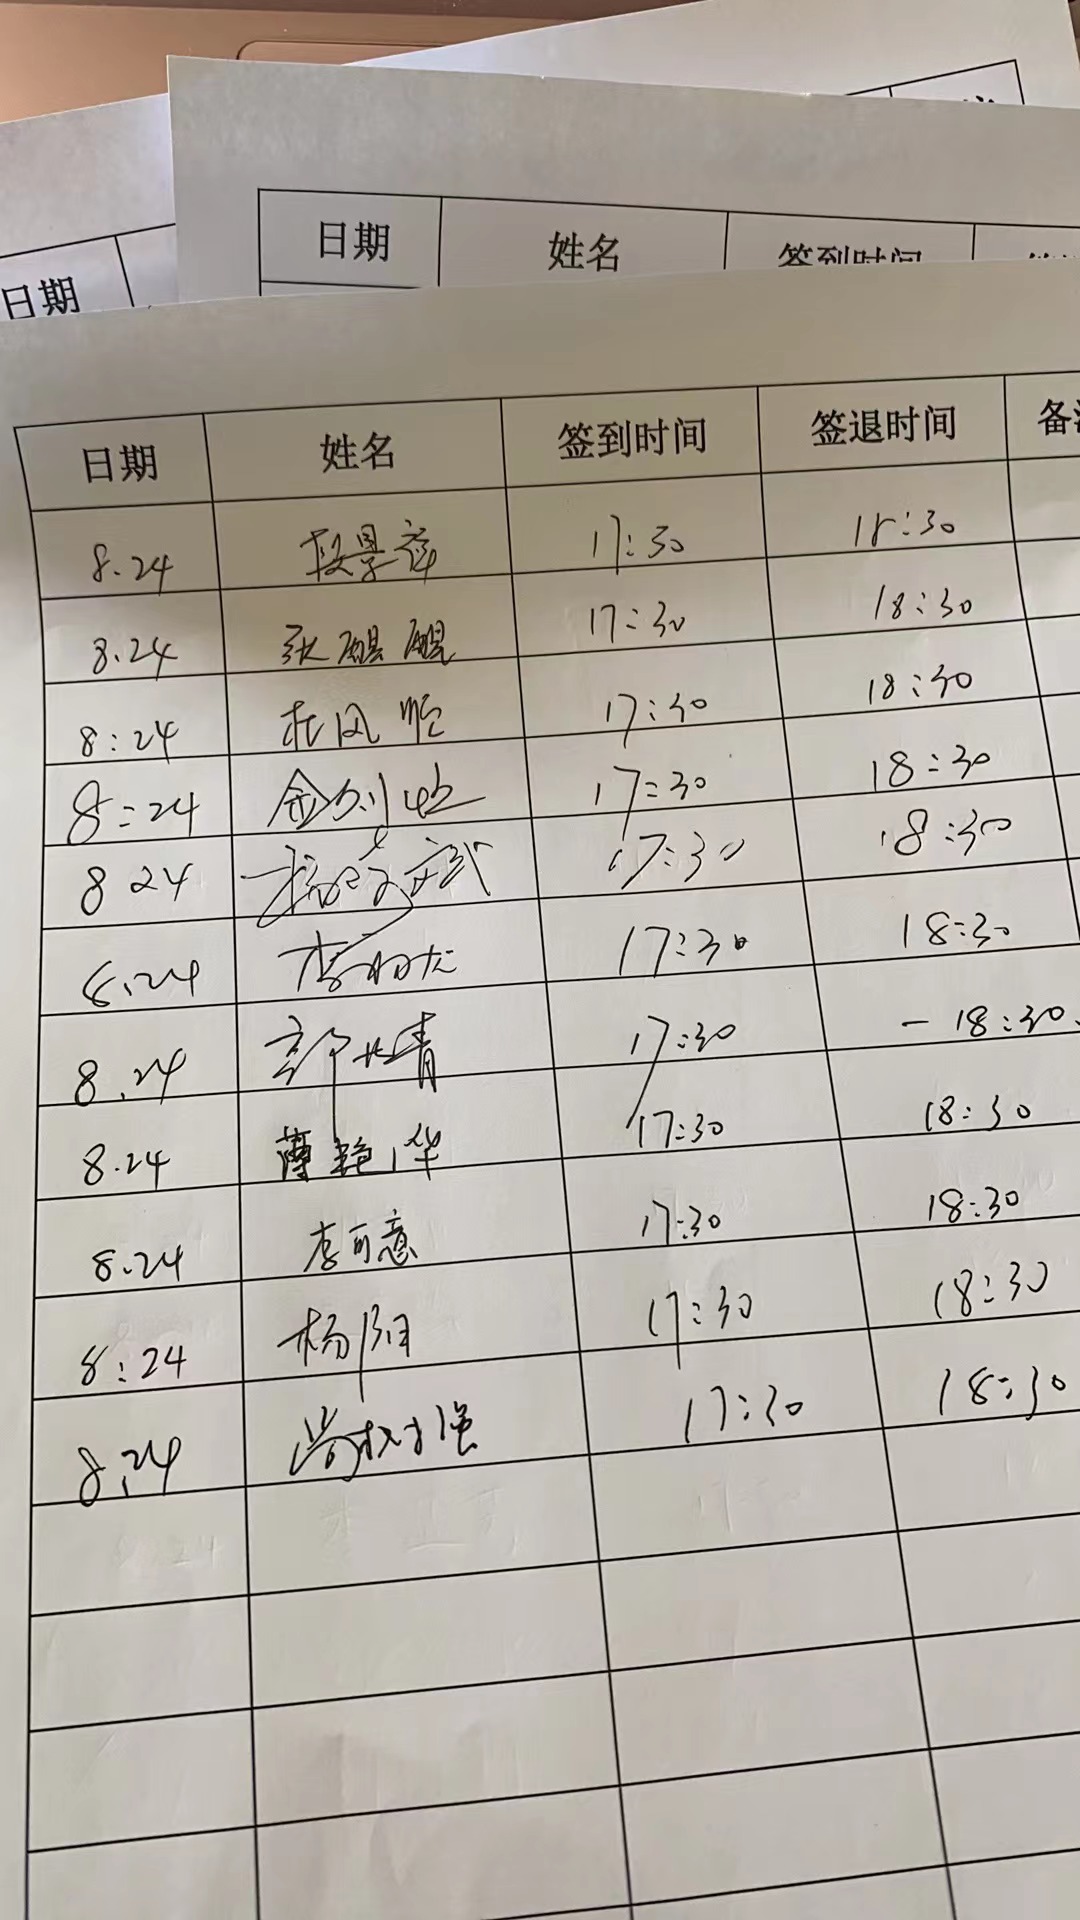 日期 姓名 签到时间
日期
日期 姓名 签到时间 签退时间 备
8.24 段景 17:30 18:30
8.24 张醒醒 17:30 18:30
8:24 杜风顺 17:30 18:30
8:24 金 17:30 18:30
8 24 杨 17:30 18:30
8.24 李 17:30 18:30
8.24 郭 青 17:30 - 18:30.
8.24 薄艳华 17:30 18:30
8.24 李可意 17:30 18:30
8:24 杨阳 17:30 18:30
8.24 强 17:30 18:30